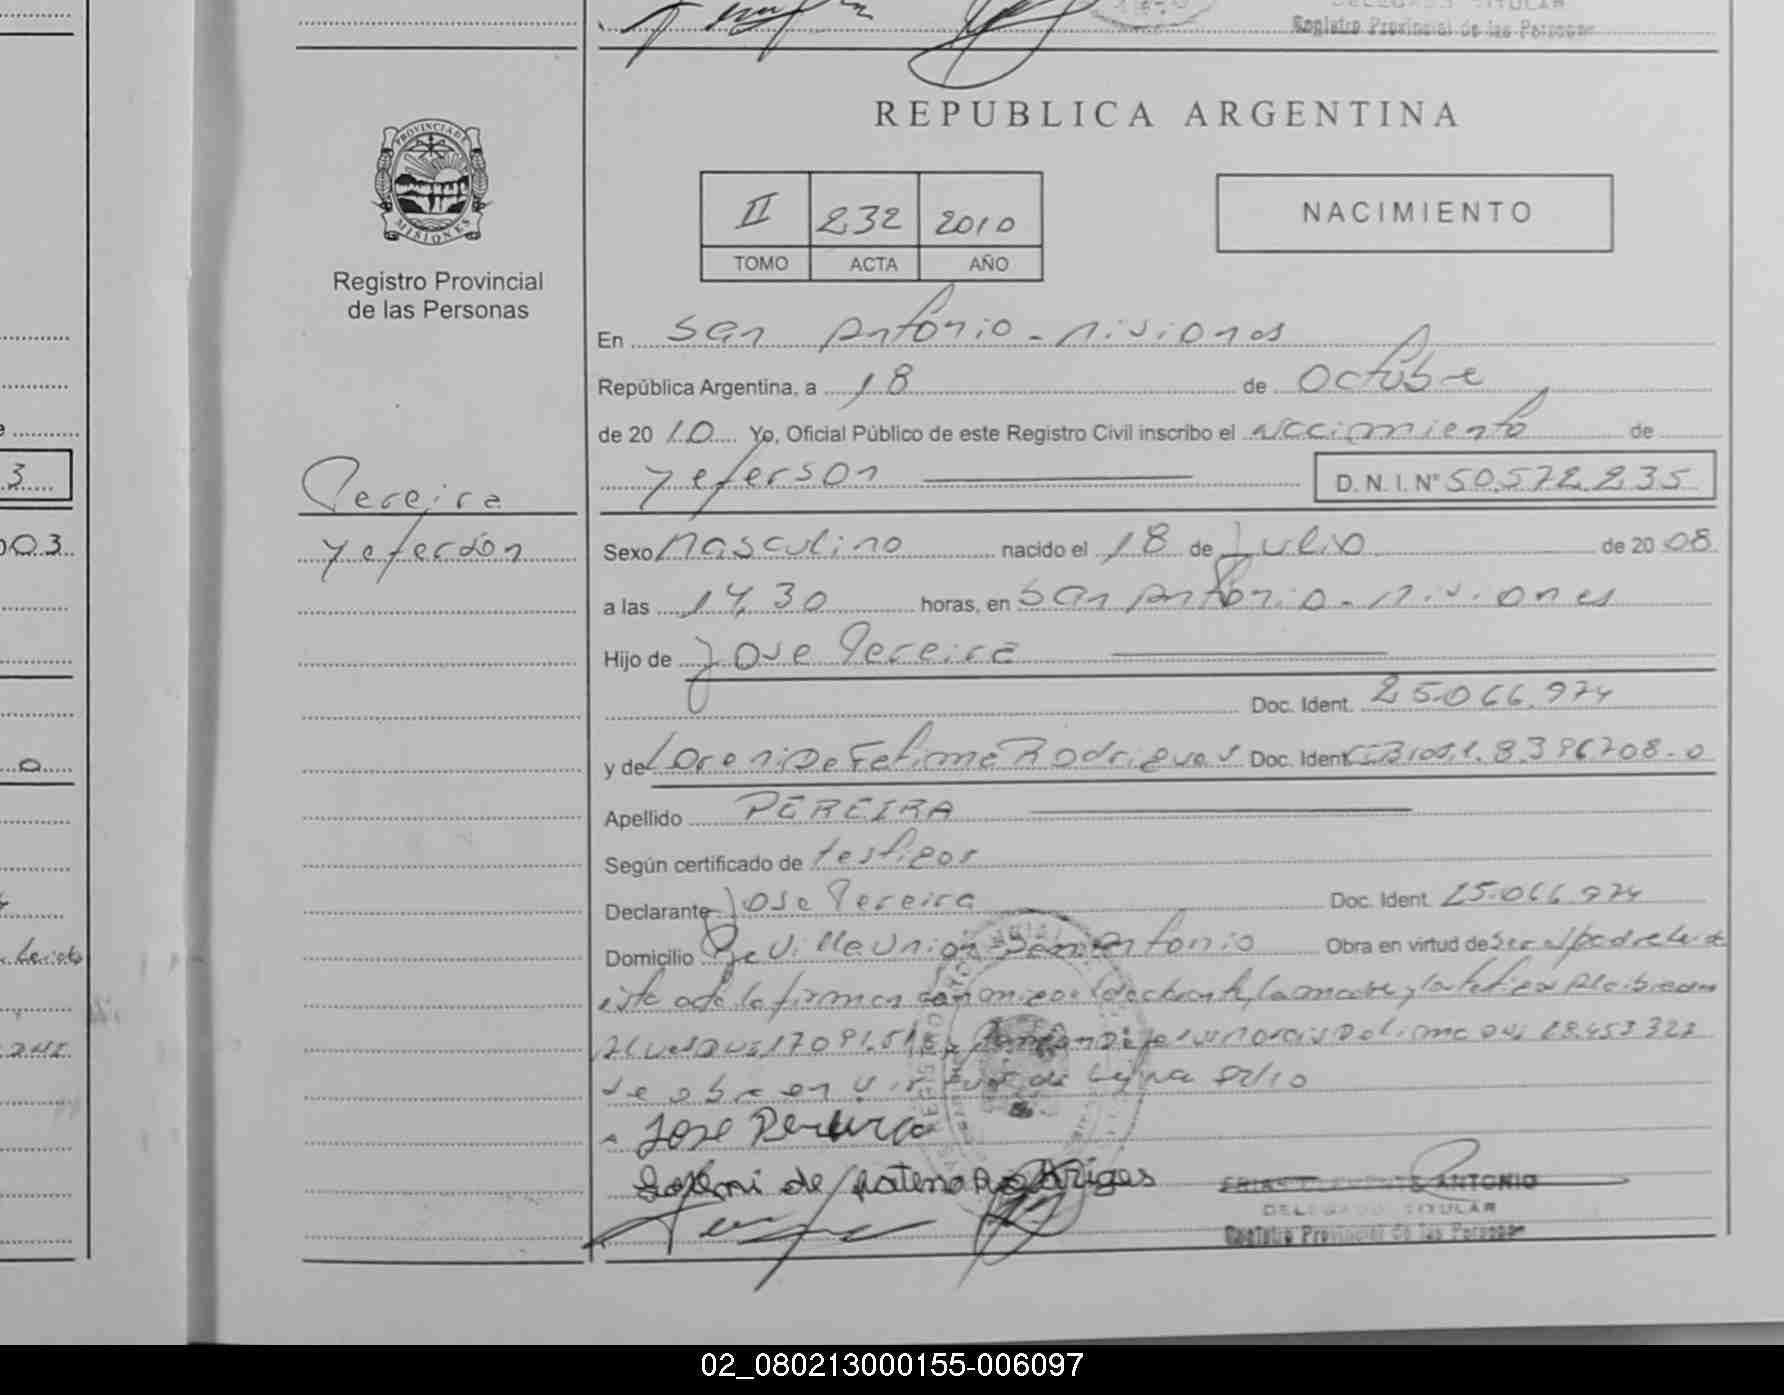 Registro Provincial de las Personas
REPUBLICA ARGENTINA
PROVINCIA DE
MISIONES
Registro Provincial
de las Personas
II 232 2010
TOMO ACTA AÑO
NACIMIENTO
En San Antonio - Misiones
República Argentina, a 18 de Octubre
de 2010 Yo, Oficial Público de este Registro Civil inscribo el nacimiento de
Yeferson
D. N. I. N° 50.572.235
Pereira
Yeferson
Sexo Masculino nacido el 18 de Julio de 2008
a las 14,30 horas, en San Antonio - Misiones
Hijo de Jose Pereira
Doc. Ident. 25.066.974
y de Loreni De Fatima Rodrigues Doc. Ident.
Apellido PEREIRA
Según certificado de testigos
Declarante Jose Pereira Doc. Ident. 25.066.974
Domicilio Villa Union San Antonio Obra en virtud de Ser el padre Leida
este acta la firman conmigo el declarante, la madre y los testigos
28.453.327
se obra en virtud de
Jose Pereira
de
ANTONIO
DELEGADO TITULAR
Registro Provincial de las Personas
02_080213000155-006097